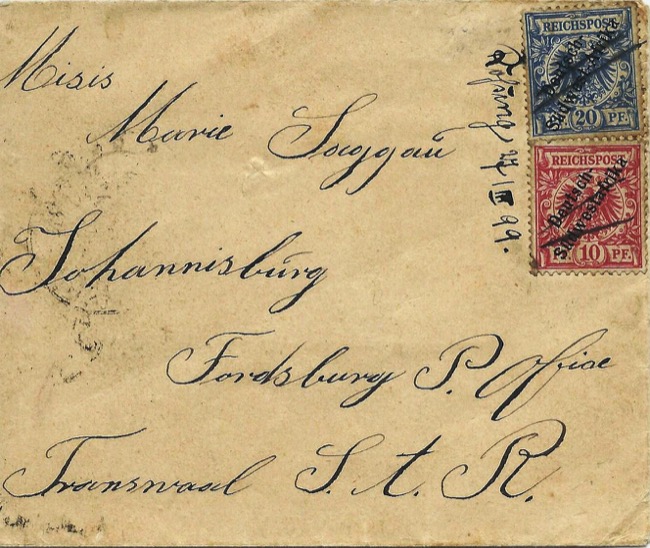 Misis
Marie Saggaŭ
Johannisbŭrg
Fordsburg P. Office
Transwaal S. A. R.
III 99.
REICHSPOST
Deutsch-
Südwest-Afrika
20 PF.
REICHSPOST
Deutsch-
Südwest-Afrika
10 PF.